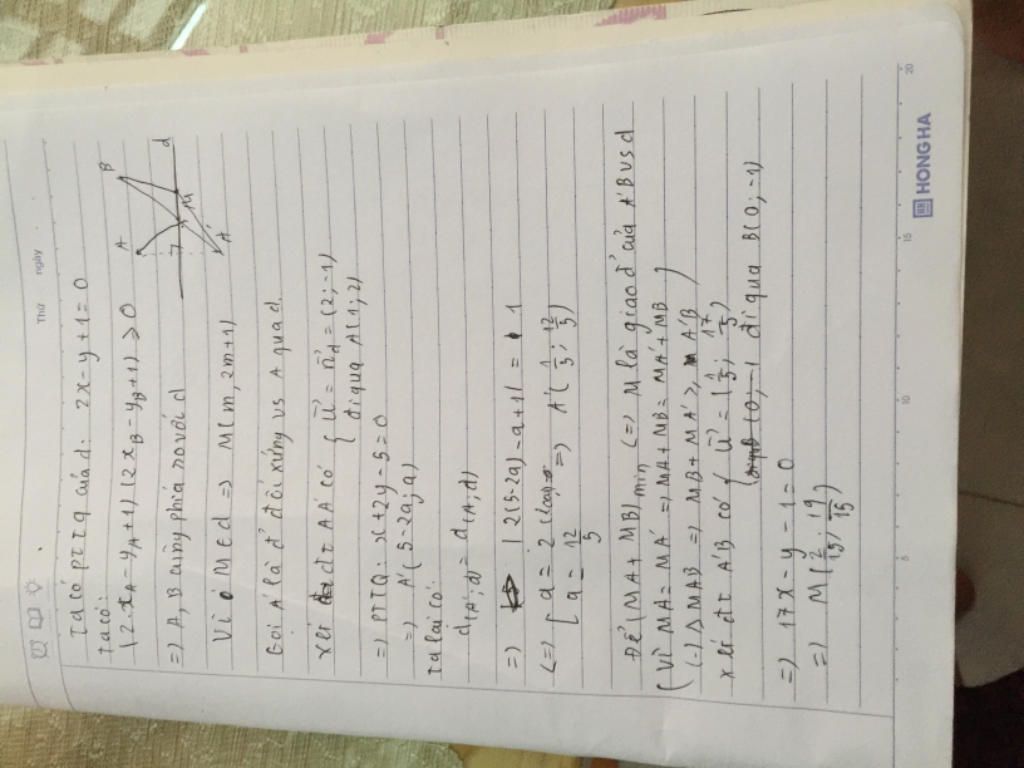 Thứ ngày
Ta có pttq của d: 2x-y+1=0
ta có:
(2x_A-y_A+1)(2x_B-y_B+1)>0
=) A, B cùng phía so với d
Vì M∈d => M(m, 2m+1)
Gọi A' là đ' đối xứng vs A qua d.
Xét đt AA' có { u⃗ = n⃗_d = (2;-1)
đi qua A(1;2)
=> PTTQ: x+2y-5=0
=) A'(5-2a;a)
Ta lại có:
d(A';d) = d(A;d)
=) |2(5-2a)-a+1| = 1
(=) [ a = 2 (loại)
a = 12/5 => A'(1/5; 12/5)
Để (MA+MB)min (=) M là giao đ' của A'B vs d
(Vì MA = MA' => MA+MB = MA'+MB
(-) Δ MAB => MB+MA' ≥ A'B )
xét đt A'B có { u⃗ = (1/5; 17/5)
đi qua B(0;-1)
=) 17x-y-1=0
=) M(2/15; 19/15)
A
B
M
d
A'
5
10
15
20
HONG HA